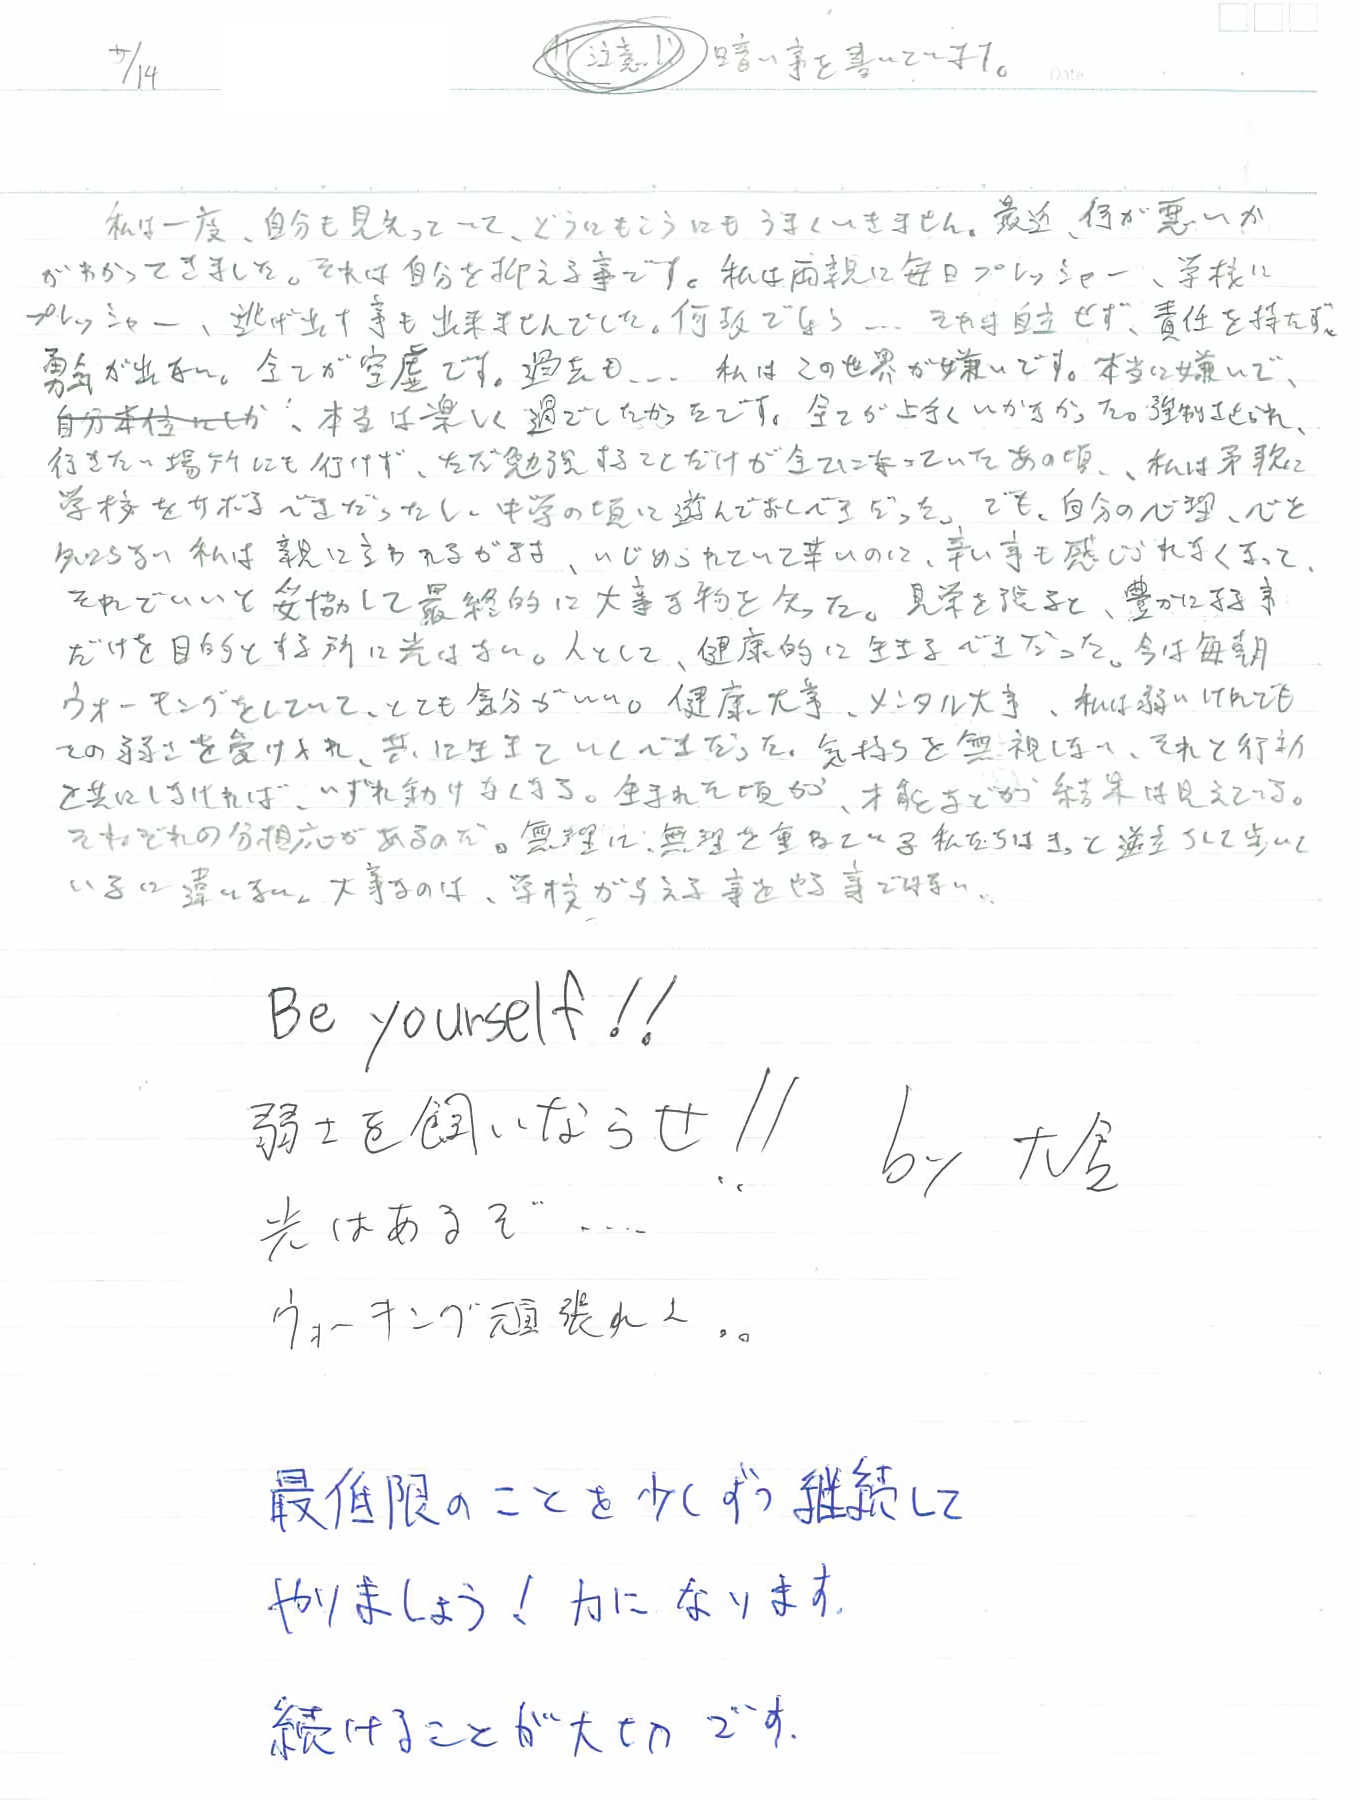 5/14
!!注意!! 暗い事を書いています。
Date
私は一度、自分も見失っていて、どうにもこうにもうまくいきません。最近、何が悪いか
がわかってきました。それは自分を抑える事です。私は両親に毎日プレッシャー、学校に
プレッシャー、逃げ出す事も出来ませんでした。何故なら…それは自立せず、責任を持たず、
勇気が出ない。全てが空虚です。過去も…私はこの世界が嫌いです。本当に嫌いで、
自分本位にしか、本当は楽しく過ごしたかったです。全てが上手くいかなかった。強制させられ、
行きたい場所にも行けず、ただ勉強することだけが全てになっていたあの頃、、私は素敵に
学校をサボるべきだったし、中学の頃に遊んでおくべきだった。でも、自分の心理、心を
知らない私は親に言われるがまま、いじめられていて辛いのに、辛い事も感じられなくなって、
それでいいと妥協して最終的に大事な物を失った。見栄を張ると、豊かにする事
だけを目的とする所に光はない。人として、健康的に生きるべきだった。今は毎朝
ウォーキングをしていて、とても気分がいい。健康大事、メンタル大事、私は弱いけれども
その弱さを受け入れ、共に生きていくべきだった。気持ちを無視しない、それと行動
を共にしなければ、いずれ動けなくなる。生まれた頃から、才能などから結果は見えている。
それぞれの分相応があるのだ。無理に、無理を重ねている私たちはきっと逆立ちして歩いて
いるに違いない。大事なのは、学校が与える事をやる事ではない..
Be yourself!!
弱さを飼いならせ!! by 大倉
光はあるぞ……
ウォーキング頑張れよ..。
最低限のことを少しずつ継続して
やりましょう! 力になります.
続けることが大切です.